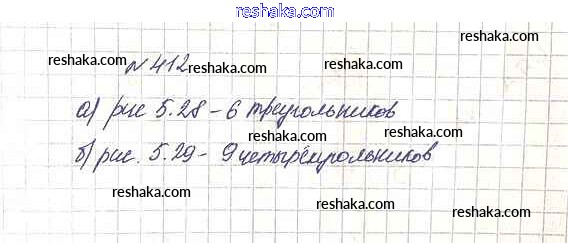 reshaka.com
reshaka.com reshaka.com
№ 412 reshaka.com
reshaka.com reshaka.com
а) рис 5.28 - 6 треугольников
reshaka.com reshaka.com
б) рис. 5.29 - 9 четырёхугольников
reshaka.com
reshaka.com
reshaka.com reshaka.com